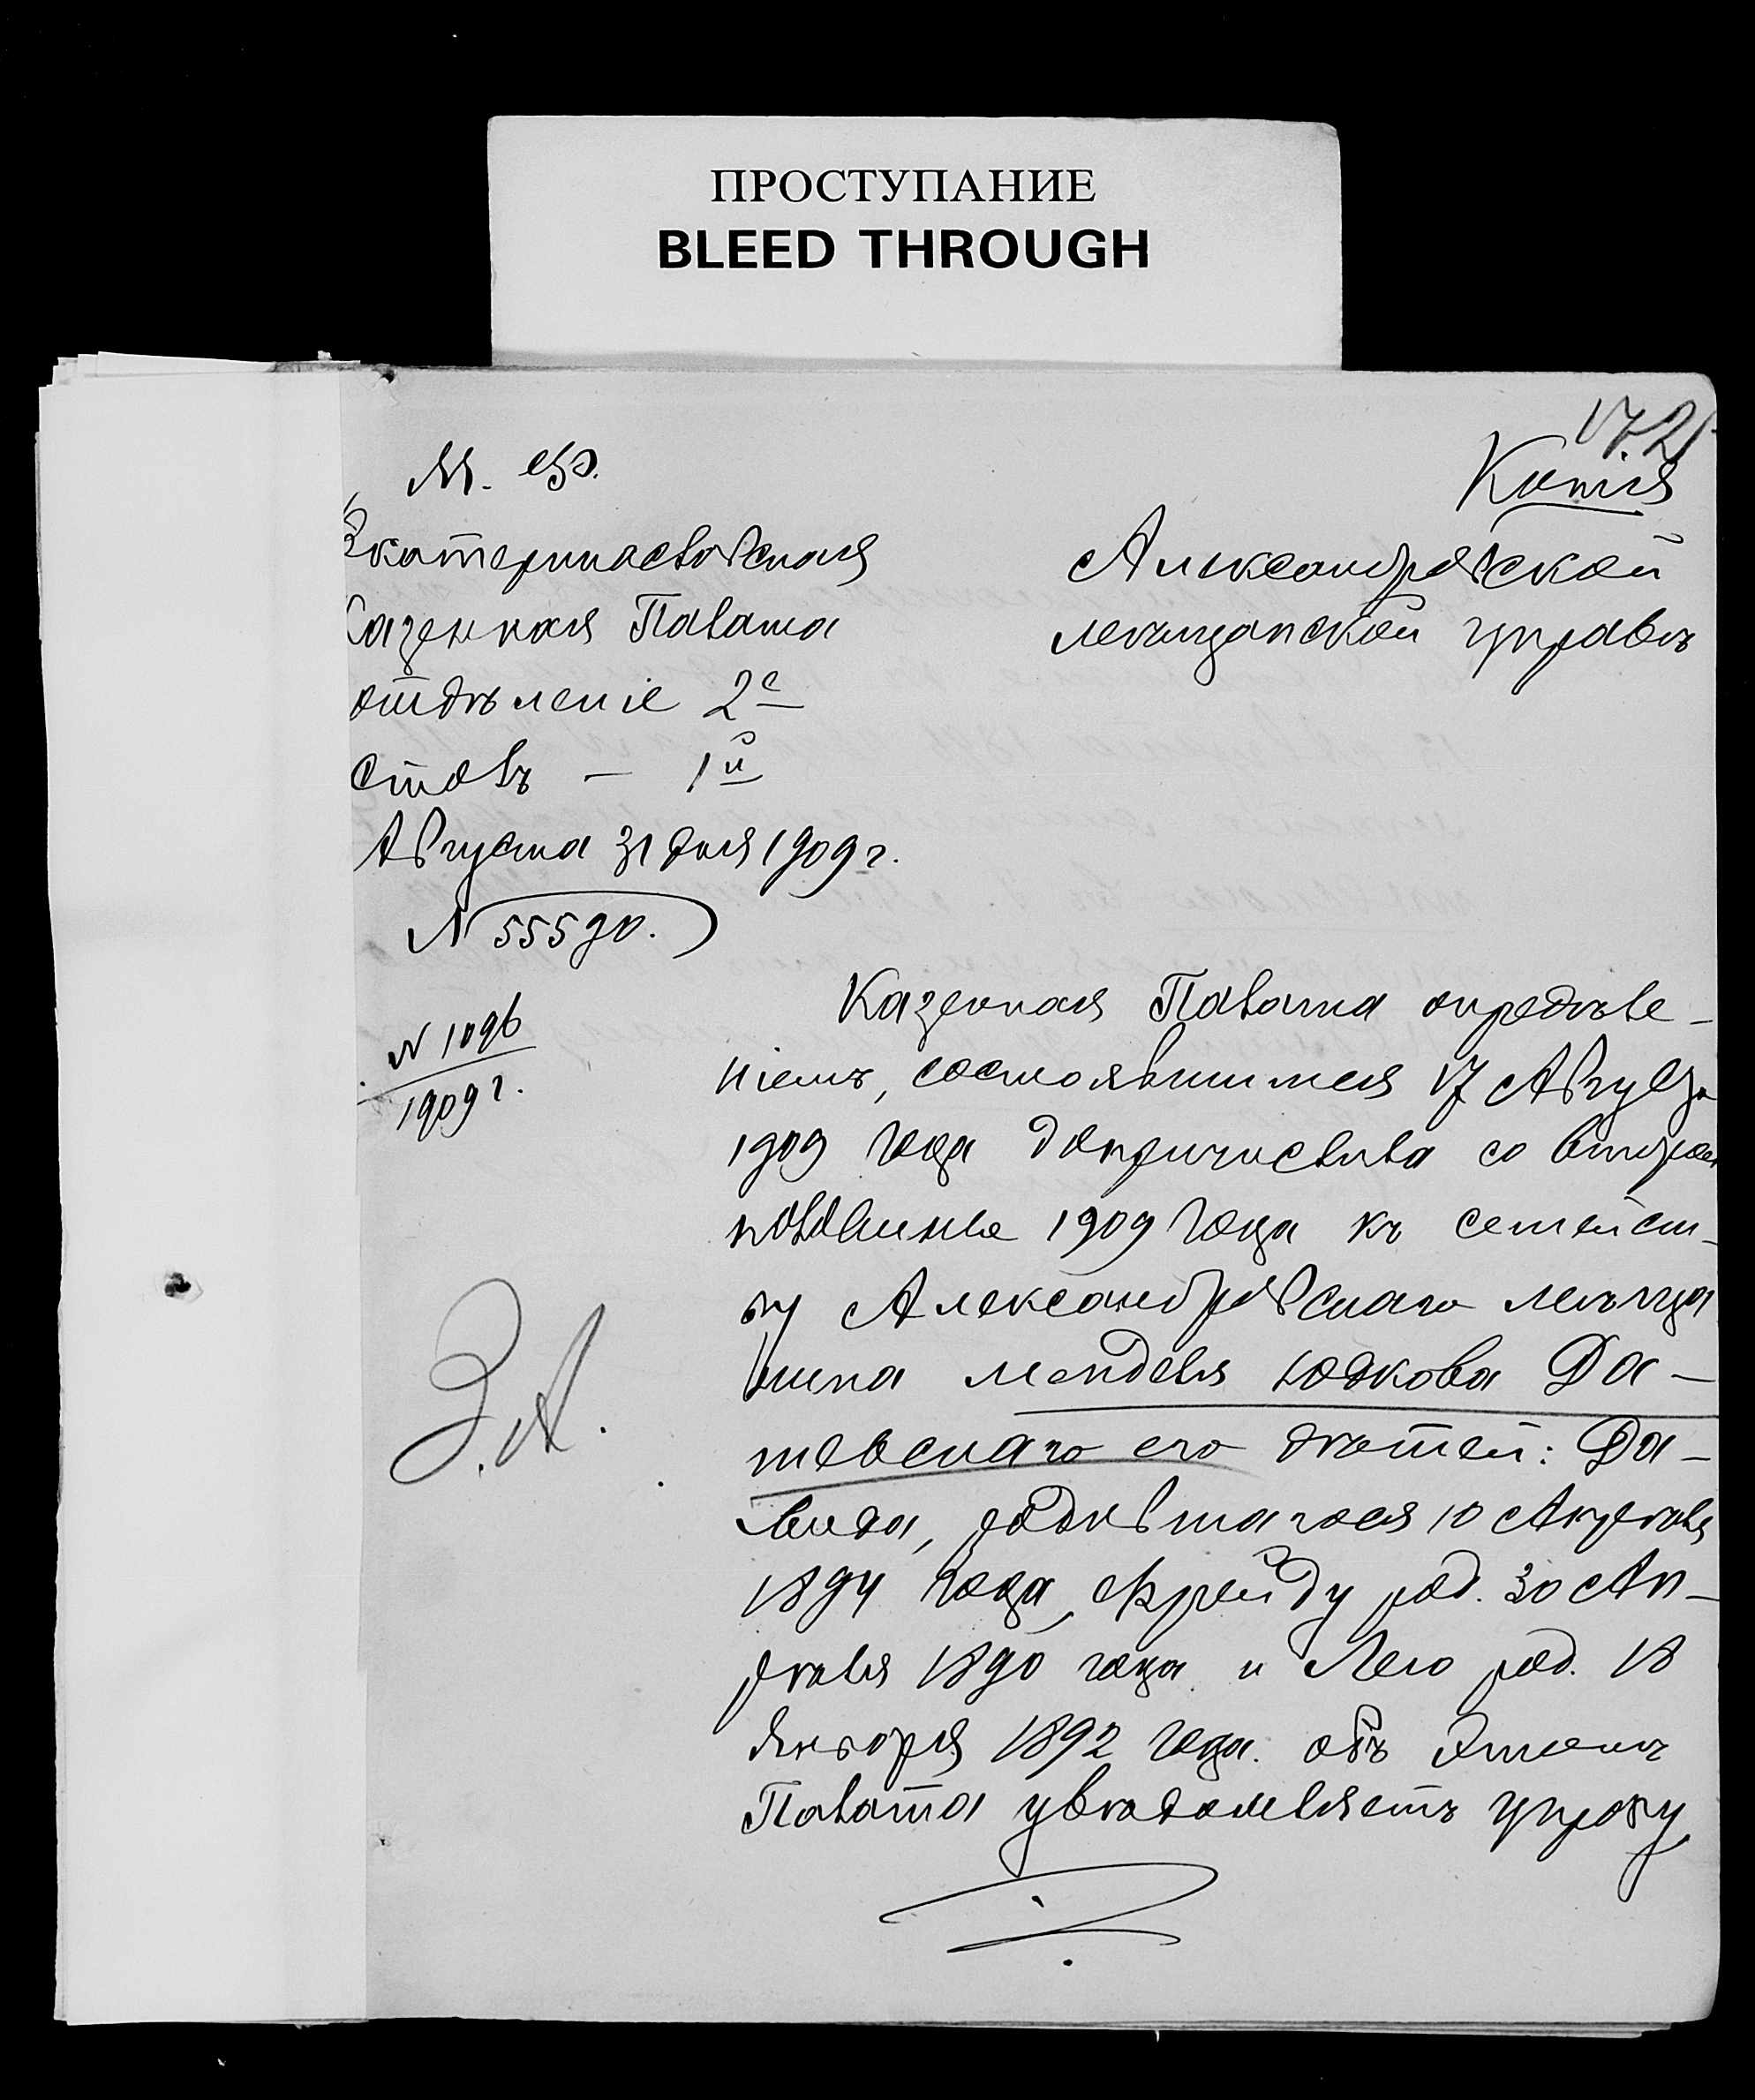 ПРОСТУПАНИЕ
BLEED THROUGH
172
Копія
М. Ф.
Екатеринославская
Казенная Палата
отдѣленіе 2е
Столъ — 1й
Августа 31 дня 1909 г.
N 55590.
N 1096
1909 г.
Александровской
мѣщанской управѣ
Казенная Палата опредѣле-
ніемъ, состоявшимся 17 Августа
1909 года допричислила со второй
половины 1909 года къ семейст-
ву Александровскаго мѣща
нина Менделя Юдкова Да-
шевскаго его дѣтей: Да-
вида, родившагося 10 Апрѣля
1894 года, Фрейду род. 30 Ап-
рѣля 1890 года и Лею род. 18
Января 1892 года. объ этомъ
Палата увѣдомляетъ управу
З.А.